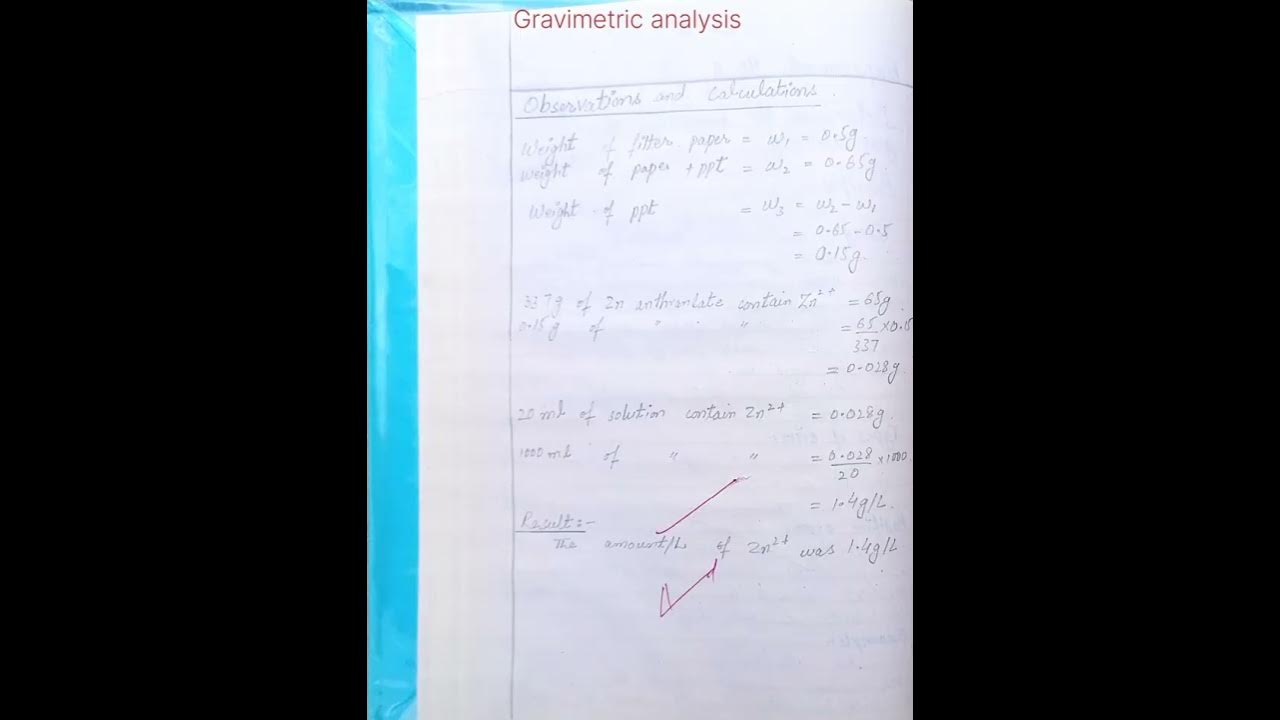 Gravimetric analysis
Observations and calculations.
Weight of filter paper = w₁ = 0.5g.
Weight of paper + ppt = w₂ = 0.65g.
Weight of ppt = w₃ = w₂ - w₁
= 0.65 - 0.5
= 0.15g.
337g of Zn anthranlate contain Zn²⁺ = 65g
0.15g of " " = 65/337 × 0.15
= 0.028g.
20 ml of solution contain Zn²⁺ = 0.028g.
1000 ml of " " = 0.028/20 × 1000
= 1.4g/L.
Result:-
The amount/L of Zn²⁺ was 1.4g/L